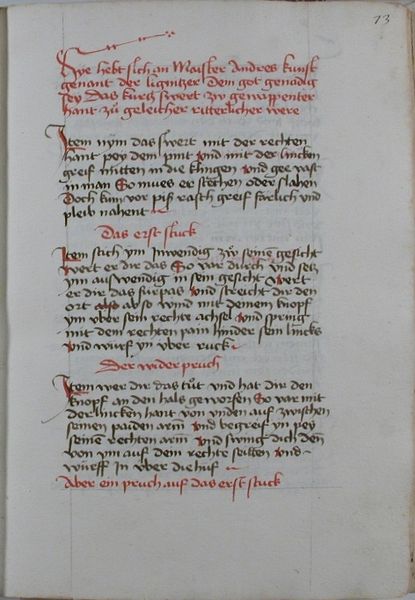 73
Hye hebt sich an Maister Andres kunst
genant der lignitzer Dem got genadig
sey Das kurcz swert zw gewappenter
hant zu gleicher ritterlicher were
Item nym das swert mit der rechten
hant pey dem pint vnd mit der lincken
greif mitten in die klingen vnd gee vast
in man So mues er stechen oder slahen
Doch kum vor piß rasch greif farlich vnd
pleib nahent
Das erst stuck
Item stich ym Inwendig zw seinē gesicht
wert er dir das So var durch vnd setz
ym auswendig in sein gesicht wert
er dir das fürpas vnd streicht dir den
ort also wind mit deinem knopf
ym vber sein rechte achsel vnd spring
mit dem rechten pain hinder sein lincks
vnd würf yn vber ruck
Der wider pruch
Item wer dir das tůt vnd hat dir den
knopf an den hals geworfen So var mit
der lincken hant von vnden auf zwischen
seinen paiden arm vnd begreif yn pey
seinē rechten arm vnd swing dich den
von ym auf dem rechte seitten vnd
würff In vber die huf
Aber ein pruch auf das erst stuck